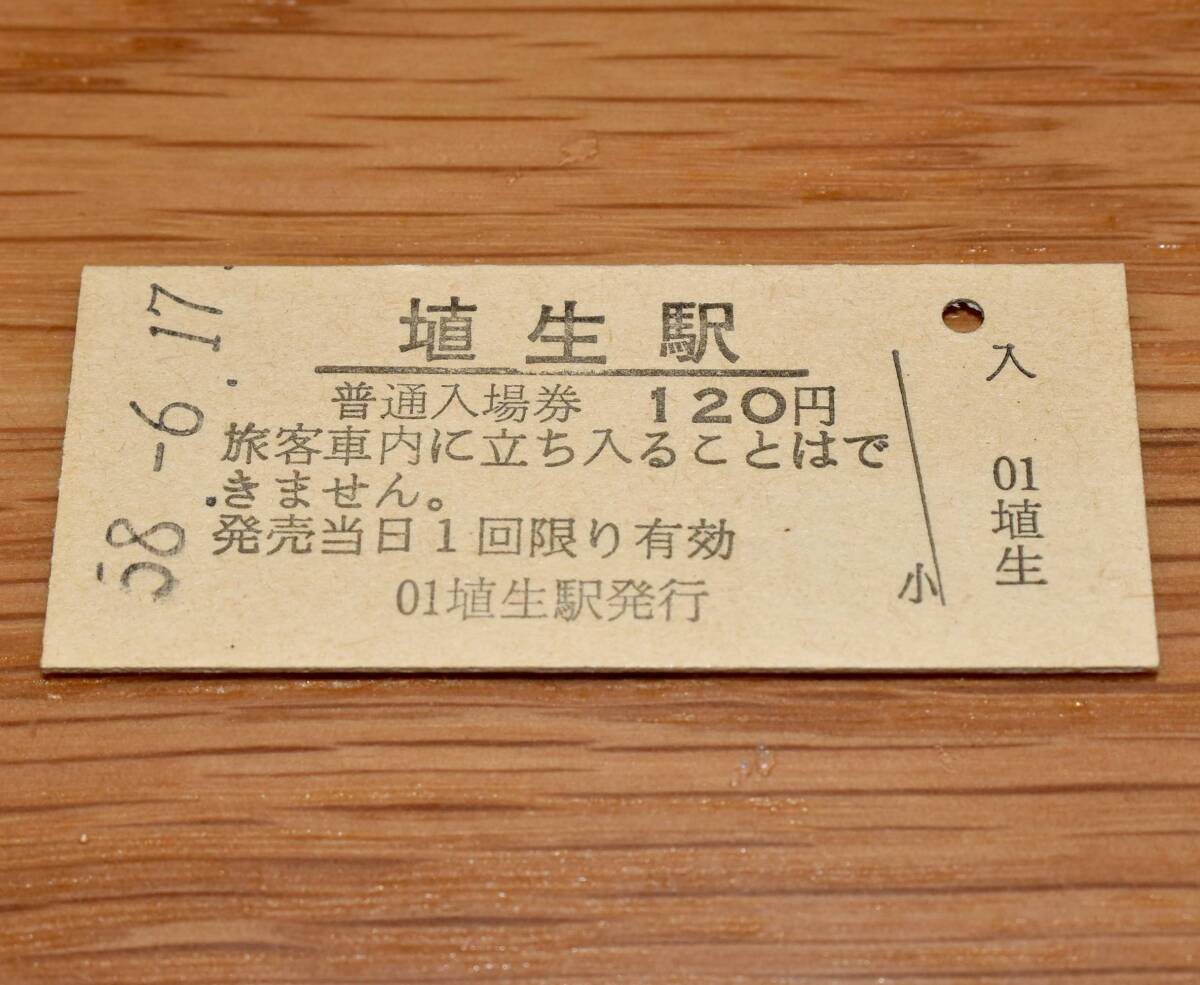 埴生駅
普通入場券 120円
旅客車内に立ち入ることはで
きません。
発売当日1回限り有効
01埴生駅発行
58.-6.17
小
入
01埴生